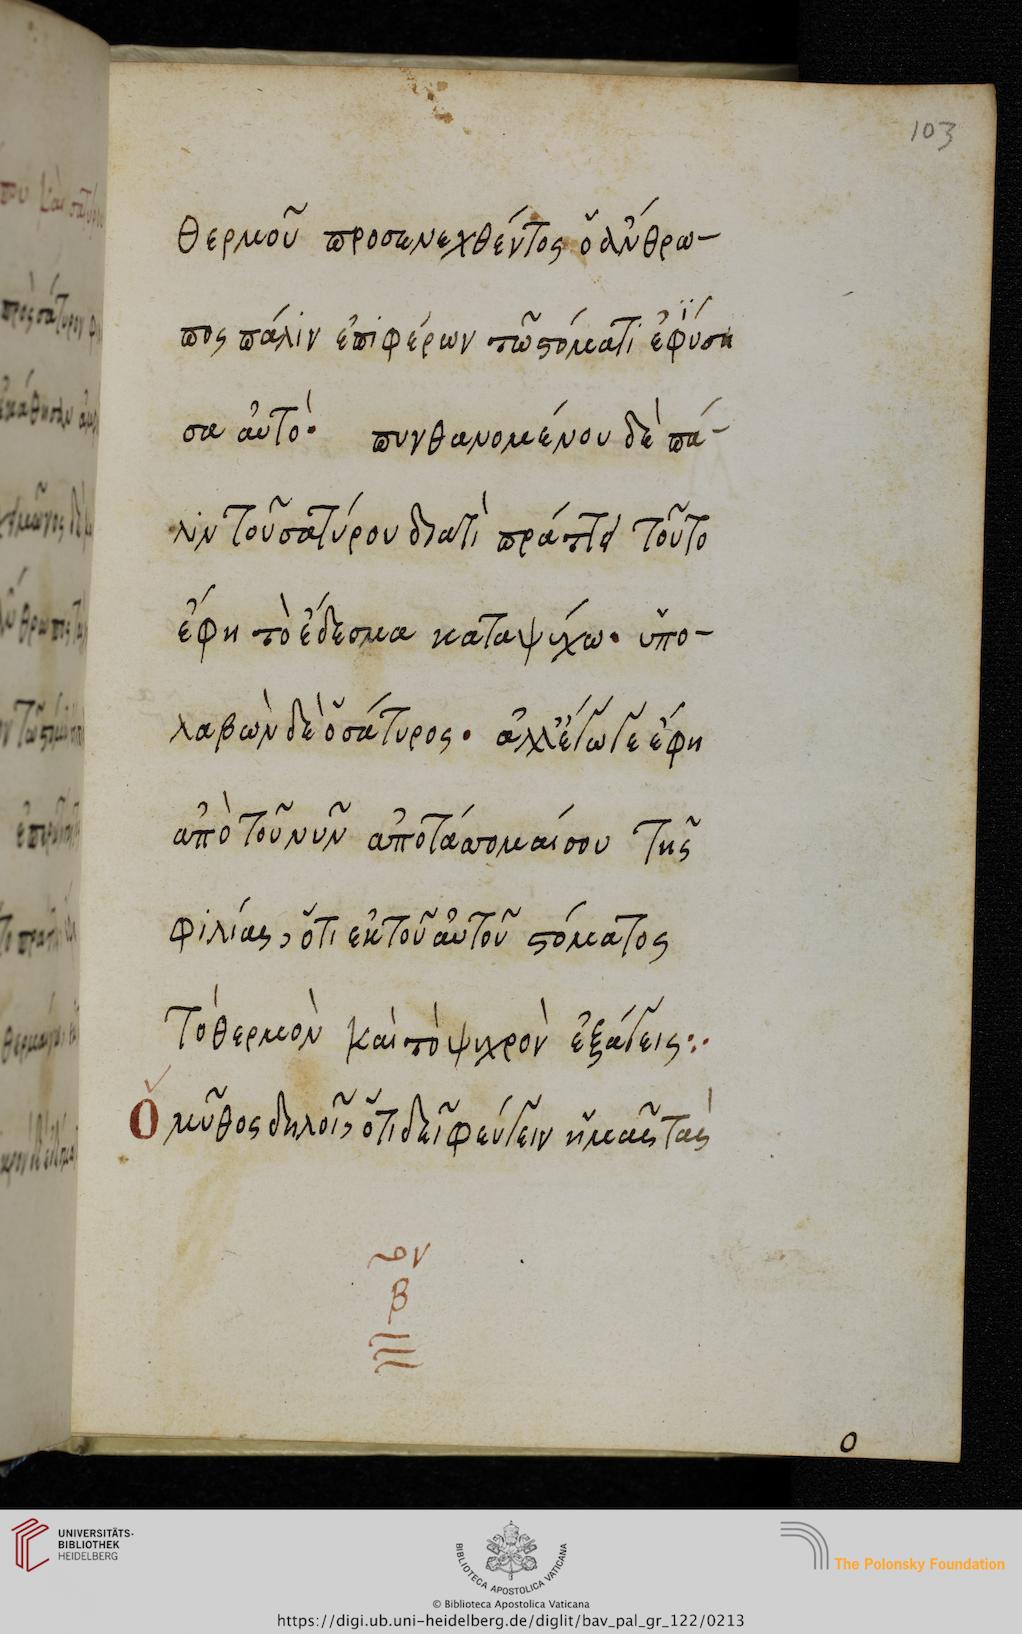 103
θερμοῦ προσενεχθέντος ὁ ἄνθρω-
πος πάλιν ἐπιφέρων τῶ στόματι ἐφϋση
σα αὐτό· πυνθανομένου δὲ πά-
λιν τοῦ σατύρου διατὶ πράττει τοῦτο
ἔφη τὸ ἔδεσμα καταψύχω· ὑπο-
λαβὼν δὲ ὁ σάτυρος· ἀλλ' ἔγωγε ἔφη
ἀπὸ τοῦ νῦν ἀποτάσσομαί σου τῆς
φιλίας, ὅτι ἐκ τοῦ αὐτοῦ στόματος
τὸ θερμὸν καὶ τὸ ψυχρὸν ἐξάγεις:·
Ὁ μῦθος δηλοῖ, ὅτι δεῖ φεύγειν ἡμᾶς τὰς
β
ο
UNIVERSITÄTS-
BIBLIOTHEK
HEIDELBERG
BIBLIOTECA APOSTOLICA VATICANA
The Polonsky Foundation
© Biblioteca Apostolica Vaticana
https://digi.ub.uni-heidelberg.de/diglit/bav_pal_gr_122/0213